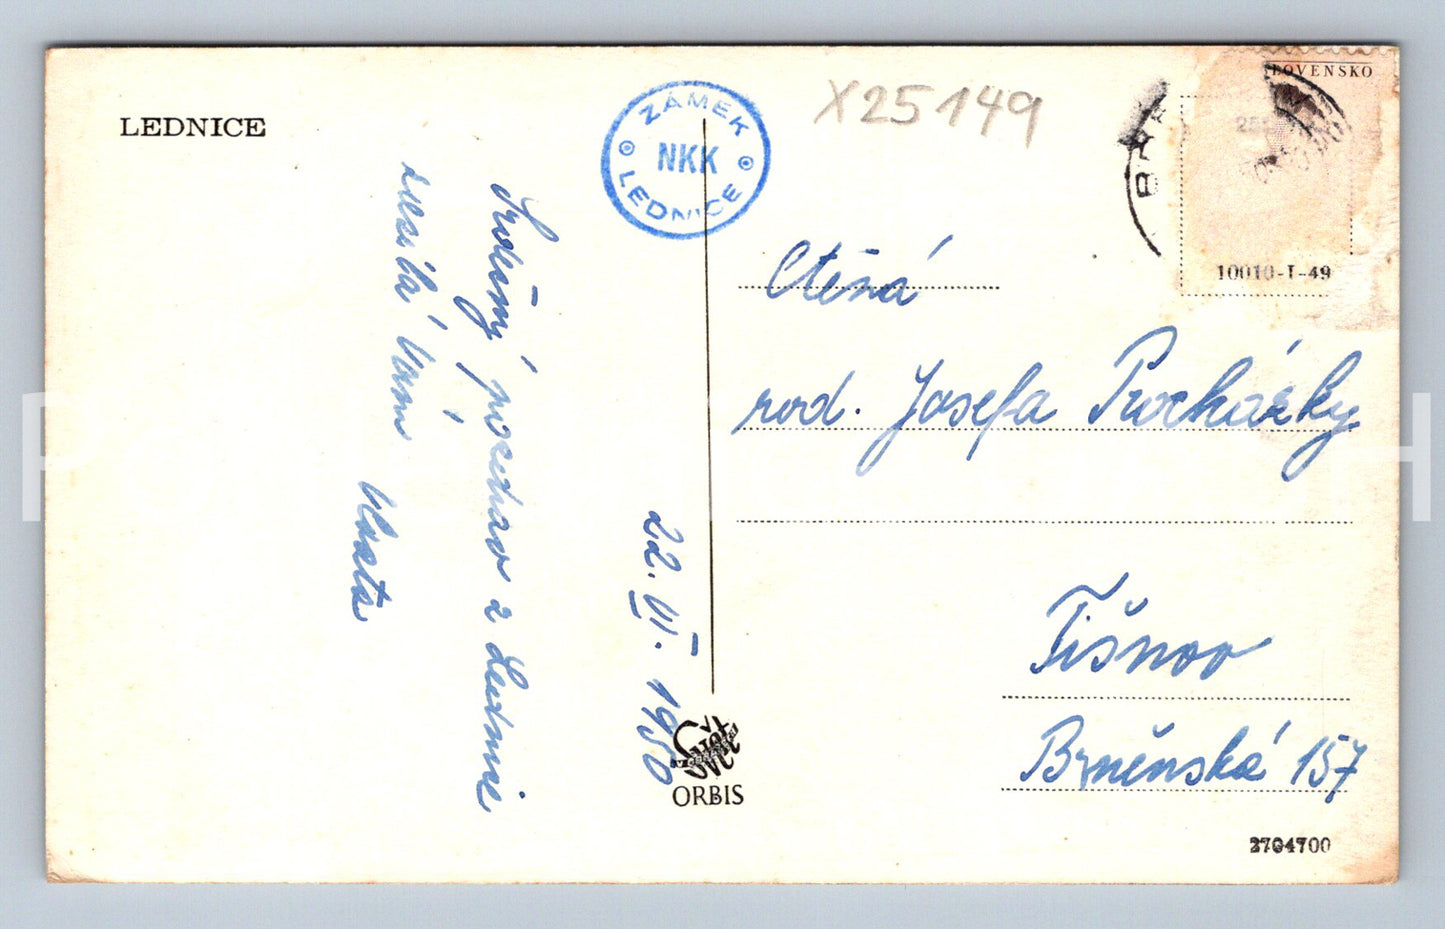 LEDNICE
ZÁMEK
NKK
LEDNICE
X25149
SLOVENSKO
BRA
10010-I-49
Srdečný pozdrav z Lednice
zasílá Vám
Vlasta
22. VI. 1950
Ctěná
rod. Josefa Procházky
Tišnov
Brněnská 157
ORBIS
2704700